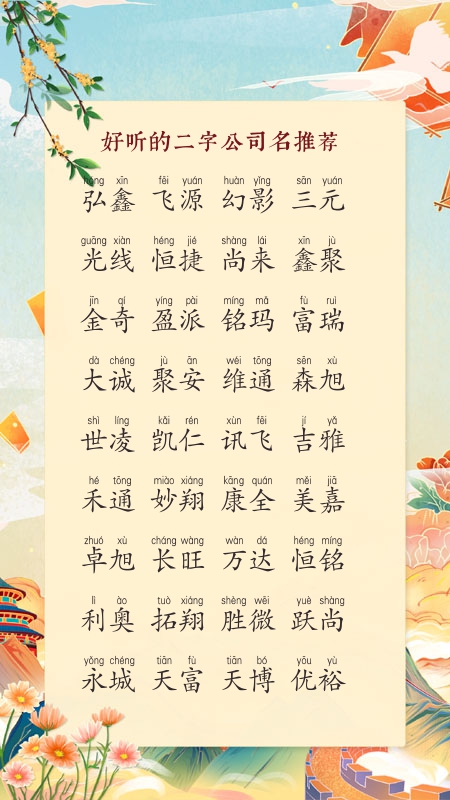 好听的二字公司名推荐
hóng xīn fēi yuán huàn yǐng sān yuán
弘鑫 飞源 幻影 三元
guāng xiàn héng jié shàng lái xīn jù
光线 恒捷 尚来 鑫聚
jīn qí yíng pài míng mǎ fù ruì
金奇 盈派 铭玛 富瑞
dà chéng jù ān wéi tōng sēn xù
大诚 聚安 维通 森旭
shì líng kǎi rén xùn fēi jí yǎ
世凌 凯仁 讯飞 吉雅
hé tōng miào xiáng kāng quán měi jiā
禾通 妙翔 康全 美嘉
zhuó xù cháng wàng wàn dá héng míng
卓旭 长旺 万达 恒铭
lì ào tuò xiáng shèng wēi yuè shàng
利奥 拓翔 胜微 跃尚
yǒng chéng tiān fù tiān bó yōu yù
永城 天富 天博 优裕